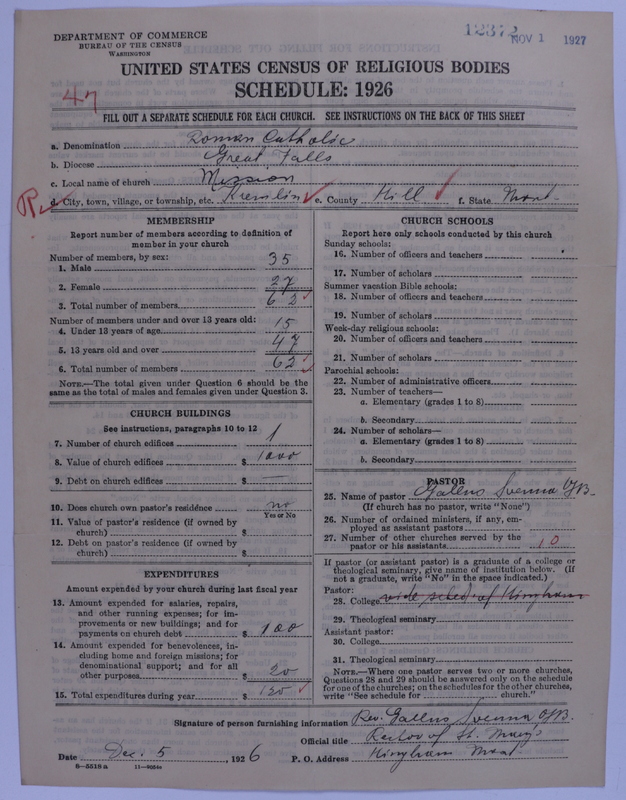 DEPARTMENT OF COMMERCE
BUREAU OF THE CENSUS
WASHINGTON
12372 NOV 1 1927
UNITED STATES CENSUS OF RELIGIOUS BODIES
SCHEDULE: 1926
47
FILL OUT A SEPARATE SCHEDULE FOR EACH CHURCH. SEE INSTRUCTIONS ON THE BACK OF THIS SHEET
a. Denomination Roman Catholic
b. Diocese Great Falls
c. Local name of church Mission
d. City, town, village, or township, etc. Kremlin e. County Hill f. State Mont.
MEMBERSHIP
Report number of members according to definition of
member in your church
Number of members, by sex:
1. Male 35
2. Female 27
3. Total number of members 62
Number of members under and over 13 years old:
4. Under 13 years of age 15
5. 13 years old and over 47
6. Total number of members 62
NOTE.—The total given under Question 6 should be the
same as the total of males and females given under Question 3.
CHURCH BUILDINGS
See instructions, paragraphs 10 to 12
7. Number of church edifices 1
8. Value of church edifices $ 1000
9. Debt on church edifices $ —
10. Does church own pastor's residence no
Yes or No
11. Value of pastor's residence (if owned by
church) $
12. Debt on pastor's residence (if owned by
church) $
EXPENDITURES
Amount expended by your church during last fiscal year
13. Amount expended for salaries, repairs,
and other running expenses; for im-
provements or new buildings; and for
payments on church debt $ 100
14. Amount expended for benevolences, in-
cluding home and foreign missions; for
denominational support; and for all
other purposes $ 20
15. Total expenditures during year $ 120
CHURCH SCHOOLS
Report here only schools conducted by this church
Sunday schools:
16. Number of officers and teachers
17. Number of scholars
Summer vacation Bible schools:
18. Number of officers and teachers
19. Number of scholars
Week-day religious schools:
20. Number of officers and teachers
21. Number of scholars
Parochial schools:
22. Number of administrative officers
23. Number of teachers—
a. Elementary (grades 1 to 8)
b. Secondary
24. Number of scholars—
a. Elementary (grades 1 to 8)
b. Secondary
PASTOR
25. Name of pastor Gallus
(If church has no pastor, write "None")
26. Number of ordained ministers, if any, em-
ployed as assistant pastors
27. Number of other churches served by the
pastor or his assistants 10
If pastor (or assistant pastor) is a graduate of a college or
theological seminary, give name of institution below. (If
not a graduate, write "No" in the space indicated.)
Pastor:
28. College vide sched. of Hingham
29. Theological seminary
Assistant pastor:
30. College
31. Theological seminary
NOTE.—Where one pastor serves two or more churches,
Questions 28 and 29 should be answered only on the schedule
for one of the churches; on the schedules for the other churches,
write "See schedule for church."
Signature of person furnishing information Rev. Gallus
Official title Rector of St. Mary's
Date Dec. 5, 1926 P. O. Address Hingham Mont.
8—5318 a 11—9054